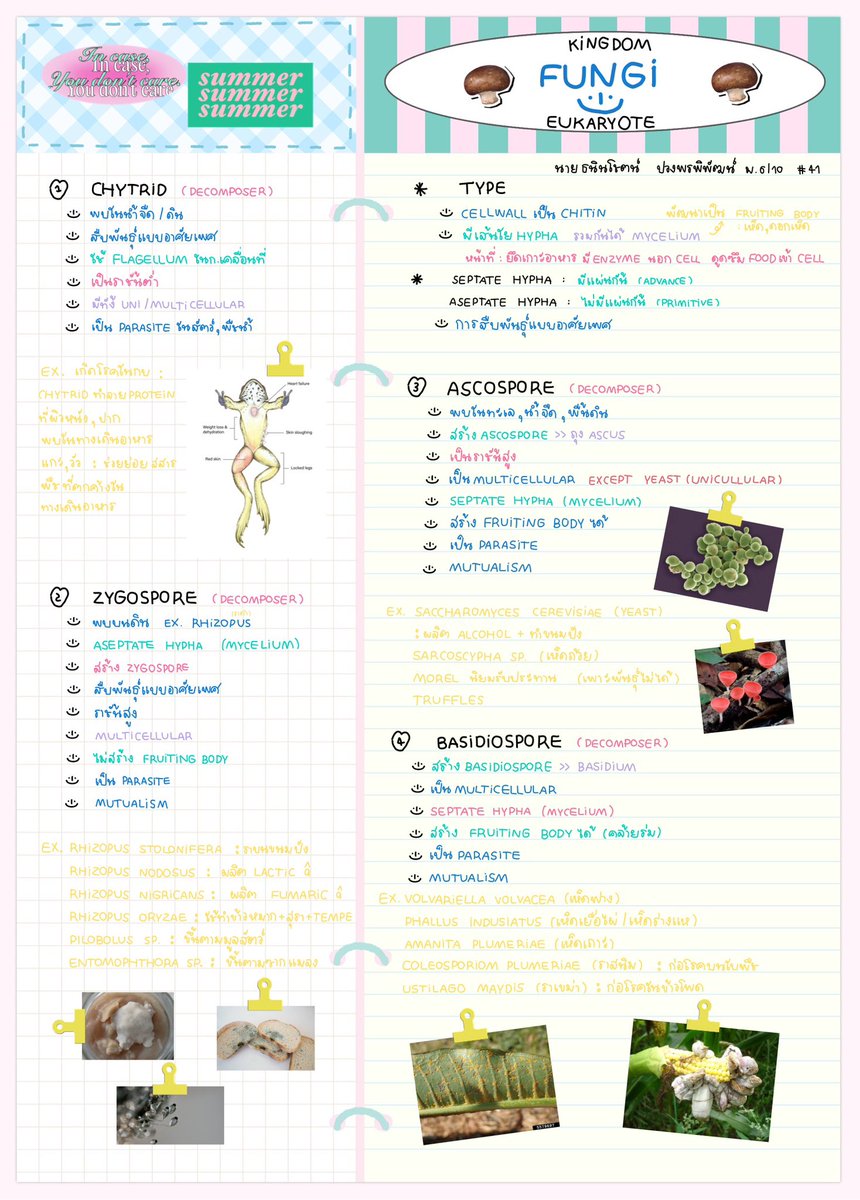 In case,
You don't care.
In case,
You don't care
summer
summer
summer
KINGDOM
FUNGI
EUKARYOTE
1 CHYTRID (DECOMPOSER)
พบในน้ำจืด / ดิน
สืบพันธุ์แบบอาศัยเพศ
ใช้ FLAGELLUM ในก.เคลื่อนที่
เป็นราชั้นต่ำ
มีทั้ง UNI / MULTICELLULAR
เป็น PARASITE ในสัตว์, พืชน้ำ
EX. เกิดโรคในกบ :
CHYTRID ทำลาย PROTEIN
ที่ผิวหนัง, ปาก
พบในทางเดินอาหาร
แกะ, วัว : ช่วยย่อยสลาย
พืชที่ตกค้างใน
ทางเดินอาหาร
Heart failure
Weight loss &
dehydration
Skin sloughing
Red skin
Locked legs
2 ZYGOSPORE (DECOMPOSER)
พบบนดิน EX. RHIZOPUS
ASEPTATE HYPHA (MYCELIUM)
สร้าง ZYGOSPORE
สืบพันธุ์แบบอาศัยเพศ
ราชั้นสูง
MULTICELLULAR
ไม่สร้าง FRUITING BODY
เป็น PARASITE
MUTUALISM
EX. RHIZOPUS STOLONIFERA : ราบนขนมปัง
RHIZOPUS NODOSUS : ผลิต LACTIC
RHIZOPUS NIGRICANS : ผลิต FUMARIC
RHIZOPUS ORYZAE : ใช้ทำข้าวหมาก + สุรา + TEMPE
PILOBOLUS SP. : ขึ้นตามมูลสัตว์
ENTOMOPHTHORA SP. : ขึ้นตามซากแมลง
ม.6/10 #41
* TYPE
CELLWALL เป็น CHITIN
พัฒนาเป็น FRUITING BODY
: เห็ด, ดอกเห็ด
มีเส้นใย HYPHA รวมกันได้ MYCELIUM
หน้าที่ : ยึดเกาะอาหาร มี ENZYME นอก CELL ดูดซึม FOOD เข้า CELL
* SEPTATE HYPHA : มีแผ่นกั้น (ADVANCE)
ASEPTATE HYPHA : ไม่มีแผ่นกั้น (PRIMITIVE)
การสืบพันธุ์แบบอาศัยเพศ
3 ASCOSPORE (DECOMPOSER)
พบในทะเล, น้ำจืด, พื้นดิน
สร้าง ASCOSPORE >> ถุง ASCUS
เป็นราชั้นสูง
เป็น MULTICELLULAR EXCEPT YEAST (UNICULLULAR)
SEPTATE HYPHA (MYCELIUM)
สร้าง FRUITING BODY ได้
เป็น PARASITE
MUTUALISM
EX. SACCHAROMYCES CEREVISIAE (YEAST)
: ผลิต ALCOHOL + ทำขนมปัง
SARCOSCYPHA SP. (เห็ดถ้วย)
MOREL นิยมรับประทาน (เพาะพันธุ์ไม่ได้)
TRUFFLES
4 BASIDIOSPORE (DECOMPOSER)
สร้าง BASIDIOSPORE >> BASIDIUM
เป็น MULTICELLULAR
SEPTATE HYPHA (MYCELIUM)
สร้าง FRUITING BODY ได้ (คล้ายร่ม)
เป็น PARASITE
MUTUALISM
EX. VOLVARIELLA VOLVACEA (เห็ดฟาง)
PHALLUS INDUSIATUS (เห็ดเยื่อไผ่ / เห็ดร่างแห)
AMANITA PLUMERIAE (เห็ดเกาะ)
COLEOSPORIOM PLUMERIAE (ราสนิม) : ก่อโรคบนใบพืช
USTILAGO MAYDIS (ราเขม่า) : ก่อโรคในข้าวโพด